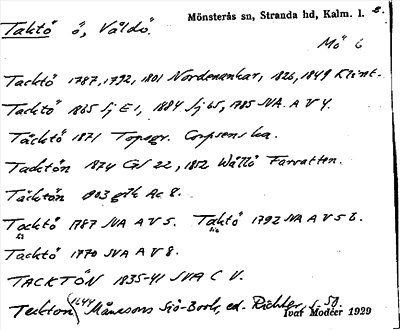 Mönsterås sn, Stranda hd, Kalm. l.
Taktö ö, Våldö.
Mö 6
Tacktö 1787, 1792, 1801 Nordenankar, 1826, 1849 Klint.
Tacktö 1865 Sj E1, 1884 Sj 65, 1785 SVA. A V 4.
Täcktö 1871 Topogr. Corpsens ka.
Tacktön 1874 GS 22, 1852 Wållö Farvatten.
Täcktön 1903 gtk Ac 8.
Tacktö 1787 SVA A V 5. Taktö 1792 SVA A V 5 b.
Tacktö 1770 SVA A V 8.
TACKTÖN 1835-41 SVA C V.
Teckton (1644) Månssons Sjö-Book, ed. Richter, s. 50.
Ivar Modéer 1929